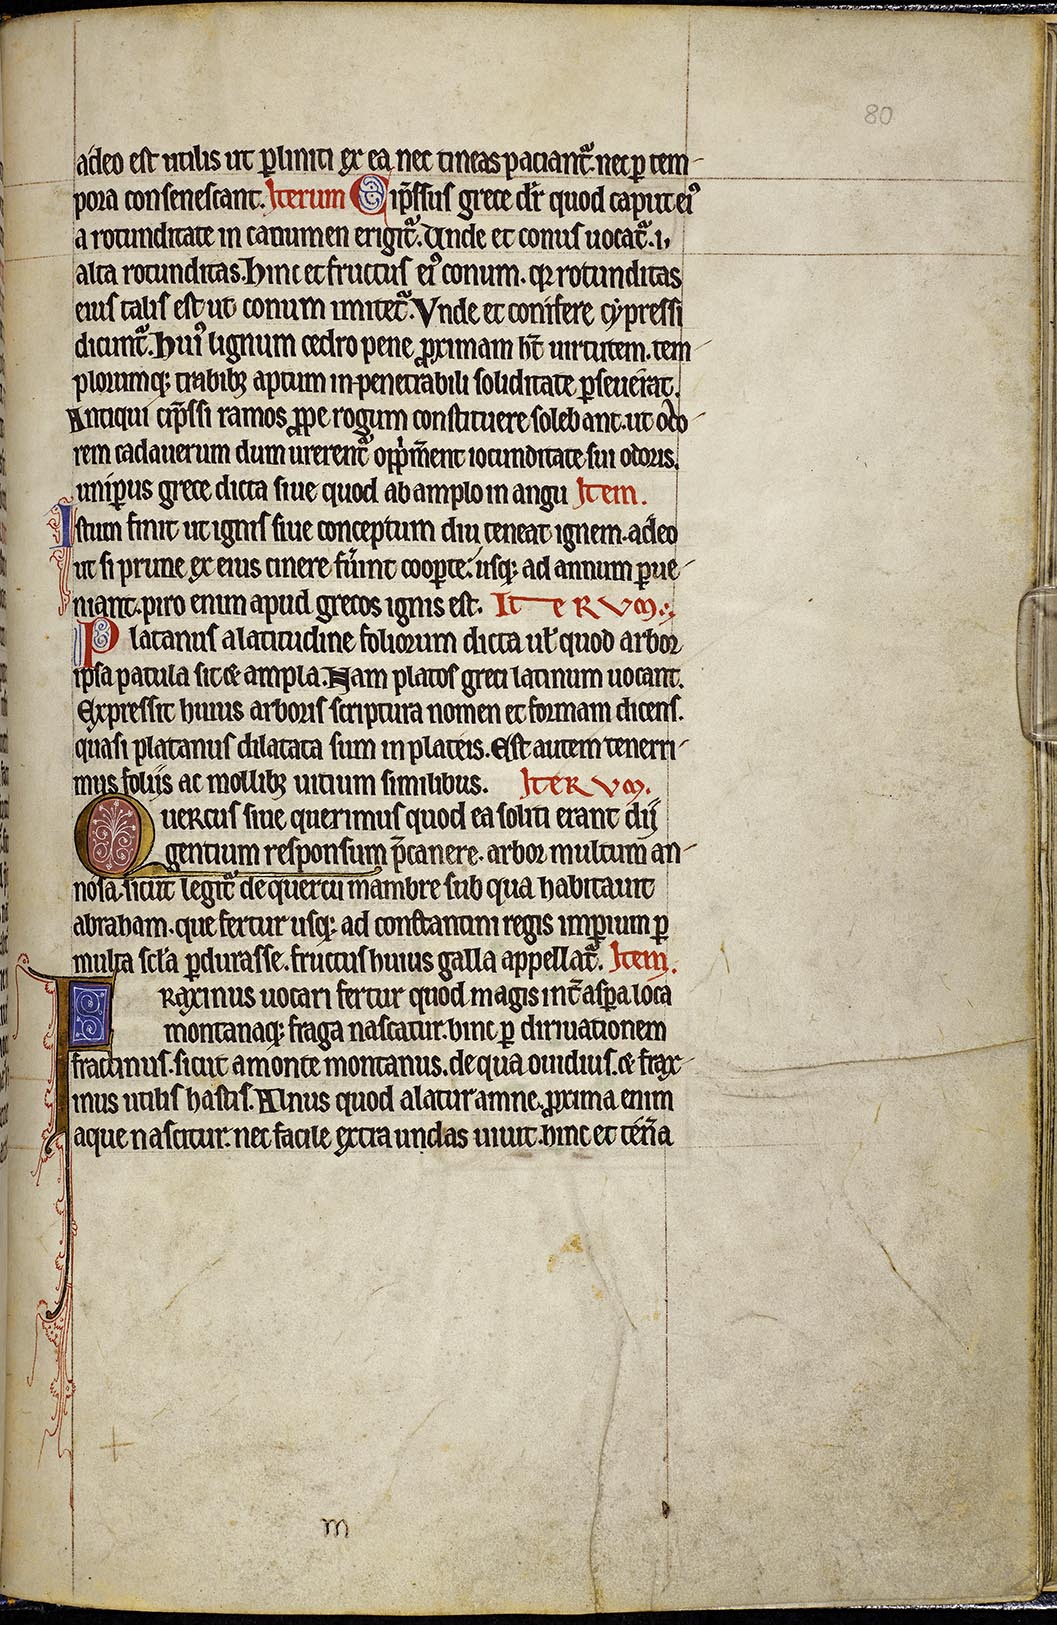 80
adeo est utilis ut ꝑliniti ex ea nec tineas paciant᷑. nec ꝑ tem-
pora consenescant. Iterum Cip̄ssus grece dr̄ quod caput eiꝰ
a rotunditate in catiumen erigit᷑. Unde et conus uocat᷑ .i.
alta rotunditas. Hinc et fructus eiꝰ conum. qꝛ rotunditas
eius talis est ut conum imitet᷑. Vnde et conifere cypressi
dicunt᷑. Huiꝰ lignum cedro pene ꝓximam ht̄ uirtutem. tem-
plorumqꝫ trabibꝫ aptum inpenetrabili soliditate ꝑseuerat.
Antiqui cip̄ssi ramos ꝓpe rogum constituere solebant. ut odo-
rem cadauerum dum urerent᷑ opp̄m̄ent iocunditate sui odoris.
uniꝑus grece dicta siue quod ab amplo in angu Item.
Istum finit ut ignis siue conceptum diu teneat ignem. adeo
ut si prune ex eius cinere fu̅int cooꝑte. usqꝫ ad annum ꝑue-
niant. piro enim apud grecos ignis est. IteRVM.
Platanus a latitudine foliorum dicta ul̄ quod arbor
ipsa patula sit & ampla. Nam platos greci latinum uocant.
Expressit huius arboris scriptura nomen et formam dicens.
quasi platanus dilatata sum in plateis. Est autem tenerri-
mus foliis ac mollibꝫ uitium similibus. IteRVM.
Quercus siue querimus quod ea soliti erant dij
gentium responsum p̄canere. arbor multum an-
nosa. sicut legit᷑ de quercu mambre sub qua habitauit
abraham. que fertur usqꝫ ad constantini regis imꝑium ꝑ
multa scl̄a ꝑdurasse. fructus huius galla appellat᷑. Item.
FRaxinus uocari fertur quod magis int̄ asꝑa loca
montanaqꝫ fraga nascatur. hinc ꝑ diriuationem
fraccinus. sicut a monte montanus. de qua ouidius. & frax-
inus utilis hastis. Alnus quod alatur amne. ꝓxima enim
aque nascitur. nec facile extra undas uiuit. hinc et ten̄a
m